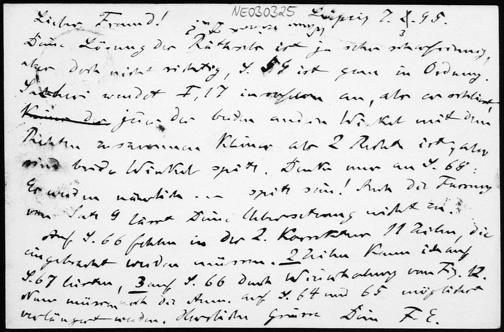 NE030325
Lieber Freund! Leipzig 7. 3. 95.
Deine Lösung des Räthsels ist ja sehr scharfsinnig,
aber doch nicht richtig, S. 59 ist ganz in Ordnung.
wendet I, 17 an, als er erklärt,
jeder der beiden andern Winkel mit dem
Rechten zusammen kleiner als 2 Rechte ist, also
sind beide Winkel spitz. Denke nur an S. 68:
Er werden nämlich ... spitz sein! Auch die Fassung
von Satz 9 lässt Deine Uebersetzung nicht zu.
Auf S. 66 fehlen in der 2. Korrektur 11 Zeilen, die
eingebracht werden müssen. 2 Zeilen kann ich auf
S. 67 bieten, 3 auf S. 66 durch Wiederholung von Fig. 12.
Nun müssen noch die Anm. auf S. 64 und 65 möglichst
verlängert werden. Herzliche Grüsse Dein F. E.